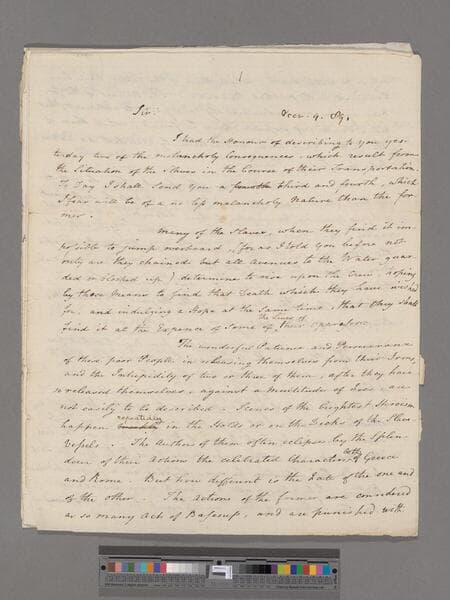 1
Sir. Decr. 9. 89.
I had the Honour of describing to you yes-
terday two of the melancholy Consequences, which result from
the Situation of the Slaves in the Course of their Transportation.
To Day I shall send You a third and fourth, which
I fear will be of a no less melancholy Nature than the for-
mer.
Many of the Slaves, when they find it im-
possible to jump overboard, (for as I told You before not
only are they chained but all avenues to the Water guar-
ded or blocked up) determine to rise upon the Crew, hoping
by these Means to find that Death which they have wished
for, and indulging a Hope at the Same time, that they shall
the Lives of
find it at the Expence of Some of their Oppressors.
The wonderful Patience and Perseverance
of these poor People in releasing themselves from their Irons,
and the Intrepidity of two or three of them, after they have
released themselves, against a Multitude of Foes are
not easily to be described. Scenes of the brightest Heroism
repeatedly
happen in the Holds or on the Decks of the Slave
Vessels. The Authors of them often eclipse by the Splen-
both
dour of their Actions the celebrated Characters of Greece
and Rome. But how different is the Fate of the one and
of the other. The Actions of the former are considered
as so many Acts of Baseness, and are punished with